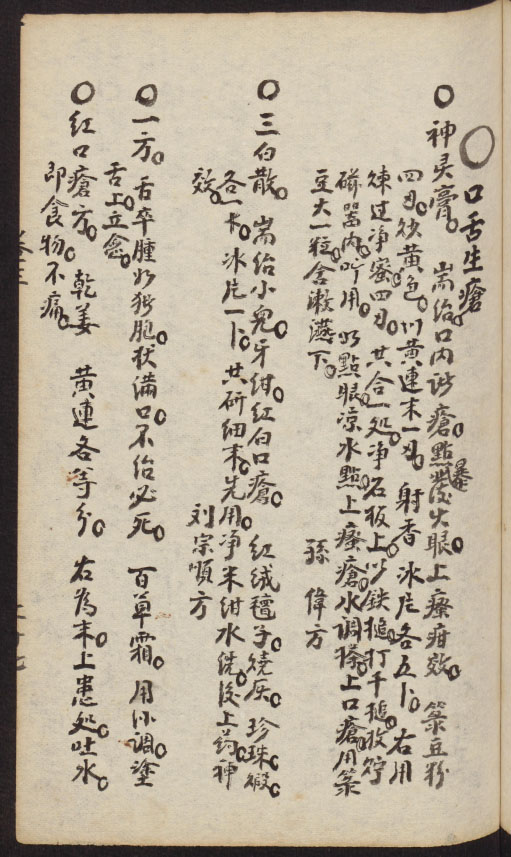 口舌生瘡
神灵膏。耑治口内諸瘡。點暴發火眼。上癢疳效。菉豆粉
四刄。炒黄色。川黄連末一刄。射香 冰片各五卜。右用
煉过净蜜四刄。共合一处。净石板上。以鉄搥打千搥。放貯
磁噐内。听用。如點眼。凉水點。上瘙瘡。水調搽。上口瘡。用菉
豆大一粒。含漱嚥下。
孫 偉方
三白散。耑治小兒。牙疳。紅白口瘡。紅絨氊子。燒灰。珍珠。煅。
各一卜。冰片一卜。共研細末。先用净米泔水洗。後上药。神
效。
刘宗順方
一方。舌卒腫如猪胞状。满口。不治必死。百草霜。用冰調。塗
舌上。立愈。
紅口瘡方。乾姜 黄連各等分。右為末。上患处。吐水。
即食物。不痛。
卷三